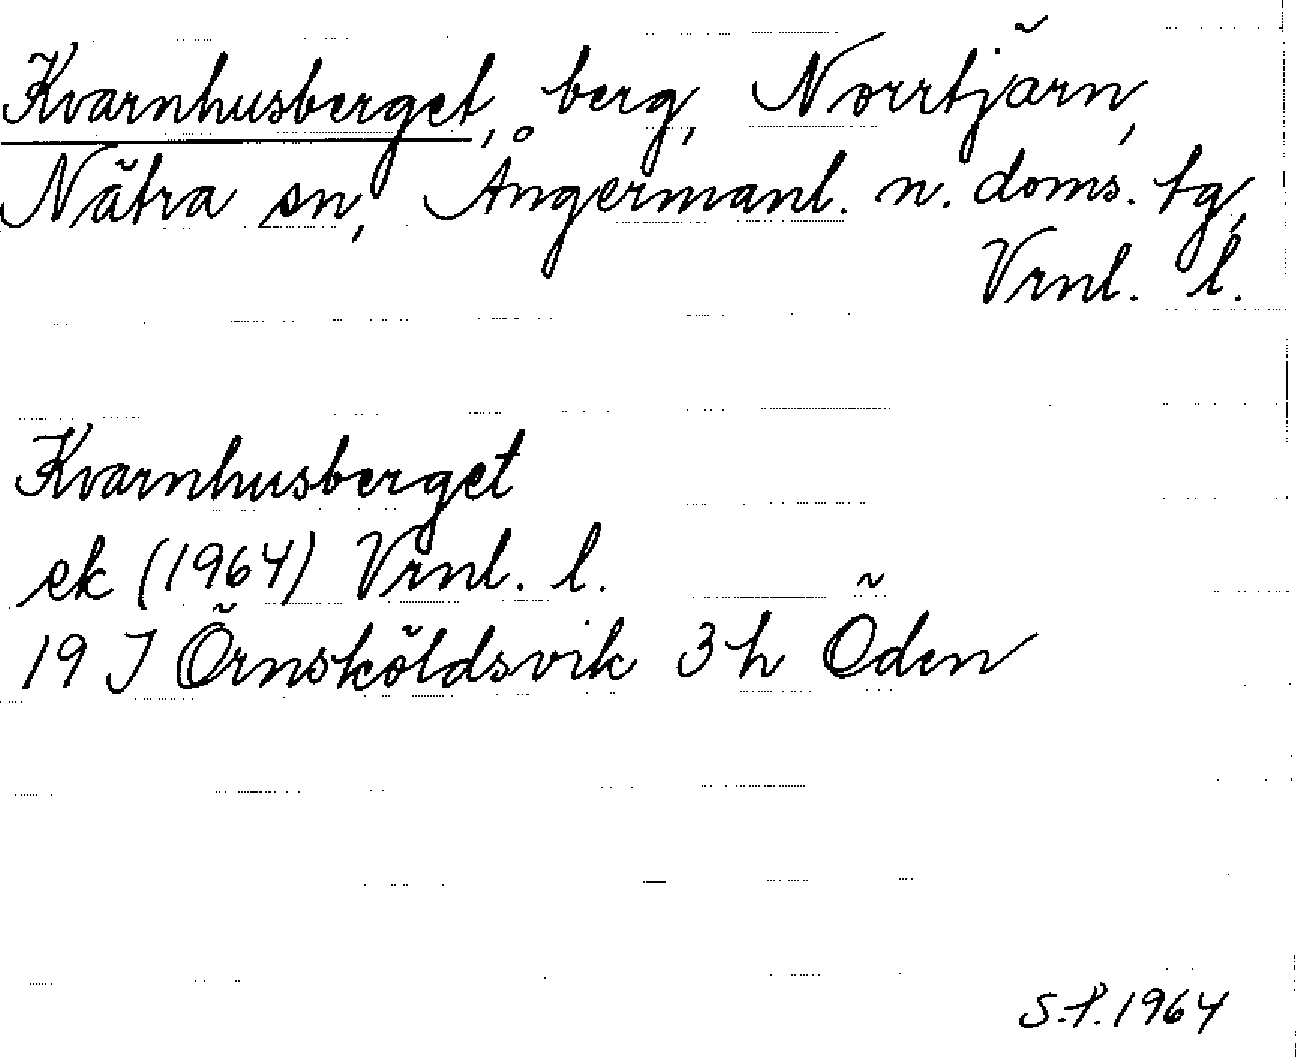 Kvarnhusberget, berg, Norrtjärn,
Nätra sn, Ångermanl. n. doms. tg,
Vrnl. l.
Kvarnhusberget
ek (1964) Vrnl. l.
19 J Örnsköldsvik 3 h Öden
S.P. 1964